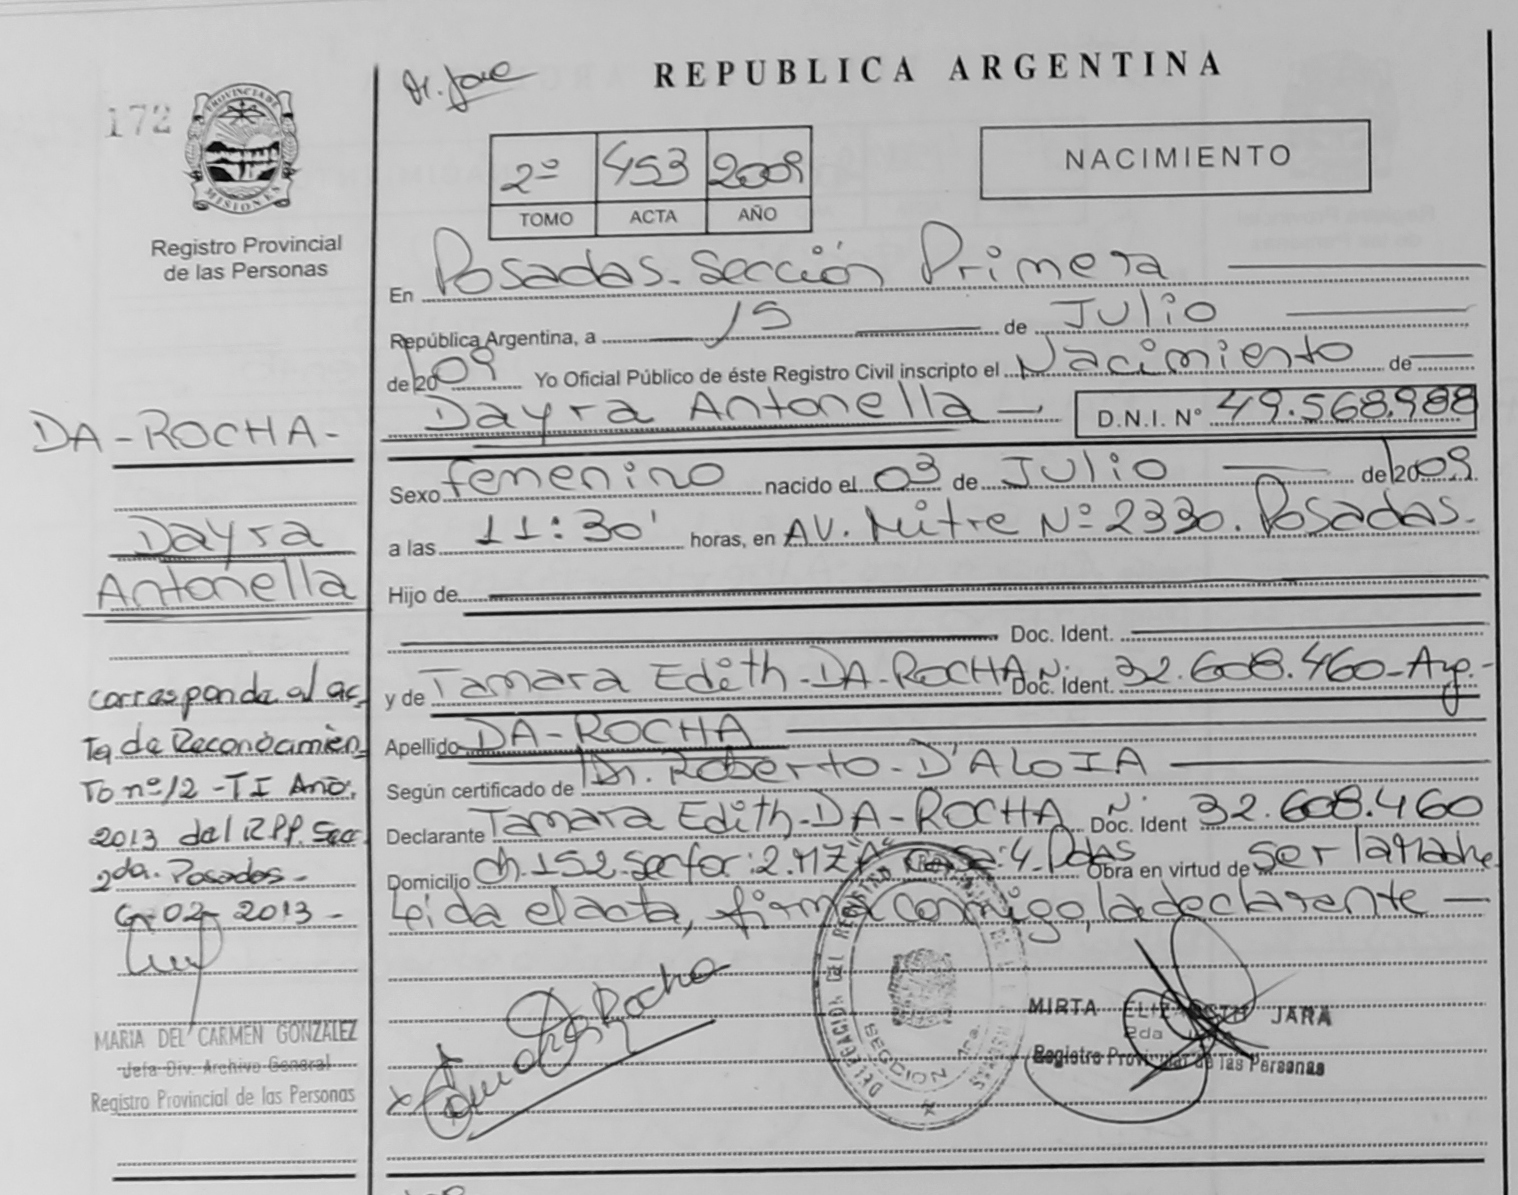 172
PROVINCIA DE
MISIONES
Registro Provincial
de las Personas
DA-ROCHA-
Dayra
Antonella
corresponde al ac
ta de Reconocimien
to nº 12 - TI Año.
2013 del R.P.P. Secc
2da. Posadas -
02- 2013 -
MARIA DEL CARMEN GONZALEZ
Jefa Div. Archivo General
Registro Provincial de las Personas
REPUBLICA ARGENTINA
2º 453 2009
TOMO ACTA AÑO
NACIMIENTO
En Posadas-Sección Primera
República Argentina, a 15 de Julio
de 2009 Yo Oficial Público de éste Registro Civil inscripto el Nacimiento de
Dayra Antonella D.N.I. Nº 49.568.988
Sexo femenino nacido el 03 de Julio de 2009
a las 11:30' horas, en AV. Mitre Nº 2330. Posadas.
Hijo de
Doc. Ident.
y de Tamara Edith-DA-ROCHA Doc. Ident. 32.608.460-Arg.-
Apellido DA-ROCHA
Según certificado de Dr. Roberto-D'ALOIA
Declarante Tamara Edith-DA-ROCHA Doc. Ident 32.608.460
Domicilio Ch.152.Sector:2.MZ"A" Casa:4.Pdas Obra en virtud de Ser la Madre
Leida el acta, firma conmigo, la declarante —
Da Rocha
DELEGACION DEL REGISTRO
SECCION 1ra.
MIRTA ELIZABETH JARA
2da
Registro Provincial de las Personas